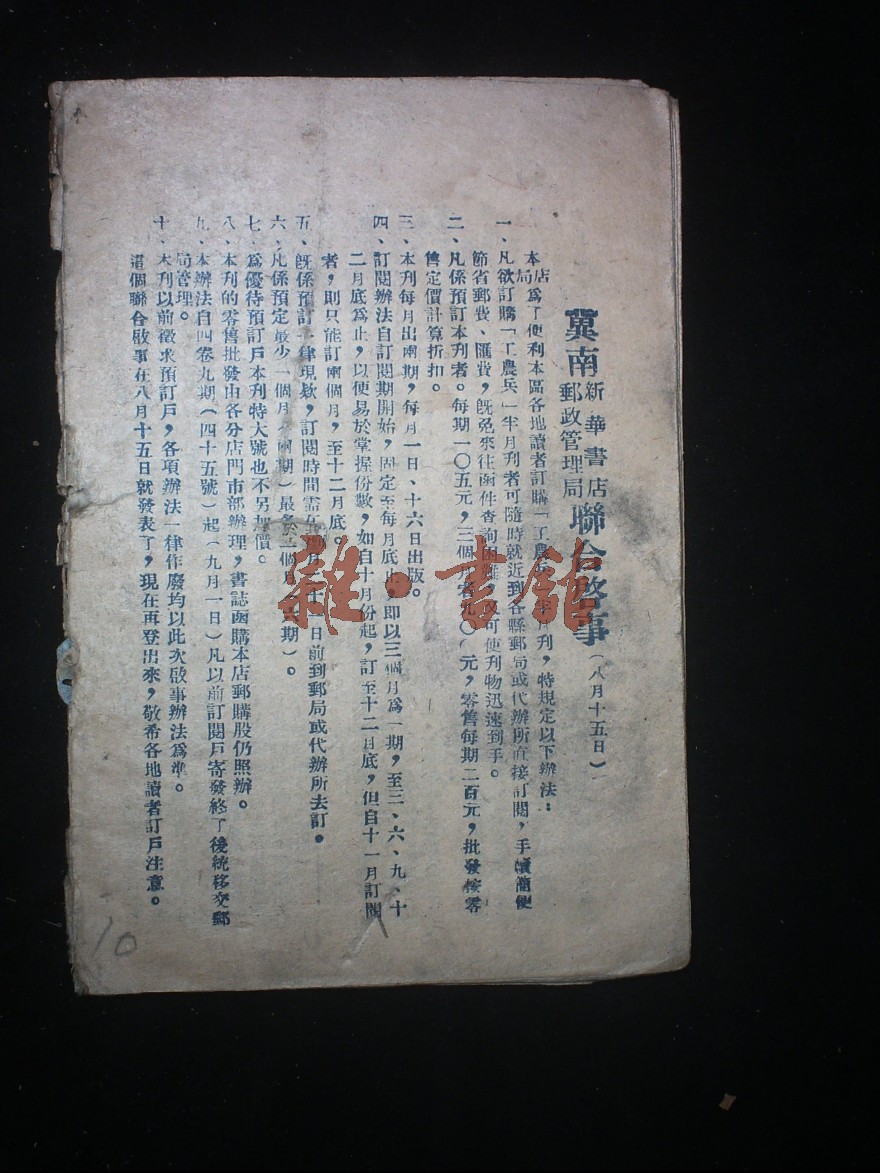 冀南新華書店郵政管理局聯合啓事(八月十五日)
本店局爲了便利本區各地讀者訂購「工農兵」半月刊,特規定以下辦法:
一、凡欲訂購「工農兵」半月刊者可隨時就近到各縣郵局或代辦所直接訂閱,手續簡便
節省郵費、匯費,旣免來往函件查詢困難,又可使刊物迅速到手。
二、凡係預訂本刊者。每期一〇五元,三個月者九〇〇元,零售每期二百元,批發按零
售定價計算折扣。
三、本刊每月出兩期,每月一日、十六日出版。
四、訂閱辦法自訂閱期開始,固定至每月底止,即以三個月爲一期,至三、六、九、十
二月底爲止,以便易於掌握份數,如自十月份起,訂至十二月底,但自十一月訂閱
者,則只能訂兩個月,至十二月底。
五、旣係預訂一律現欵,訂閱時間需在月二十一日前到郵局或代辦所去訂。
六、凡係預定最少一個月(兩期)最多三個月(六期)。
七、爲優待預訂戶本刊特大號也不另加價。
八、本刊的零售批發由各分店門市部辦理,書誌函購本店郵購股仍照辦。
九、本辦法自四卷九期(四十五號)起(九月一日)凡以前訂閱戶寄發終了後統移交郵
局管理。
十、本刊以前徵求預訂戶,各項辦法一律作廢均以此次啟事辦法爲準。
這個聯合啟事在八月十五日就發表了,現在再登出來,敬希各地讀者訂戶注意。
10
雜·書館